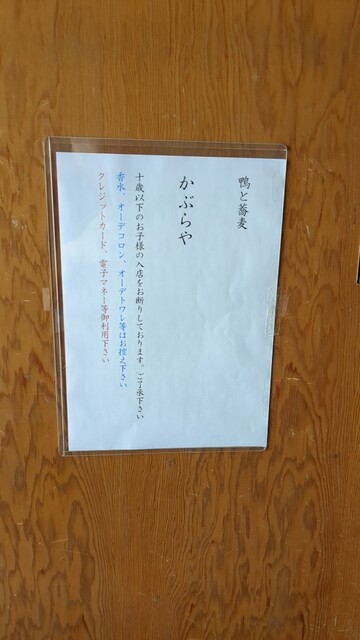 鴨と蕎麦
かぶらや
十歳以下のお子様の入店をお断りしております。ご了承下さい
香水、オーデコロン、オーデトワレ等はお控え下さい
クレジットカード、電子マネー等御利用下さい